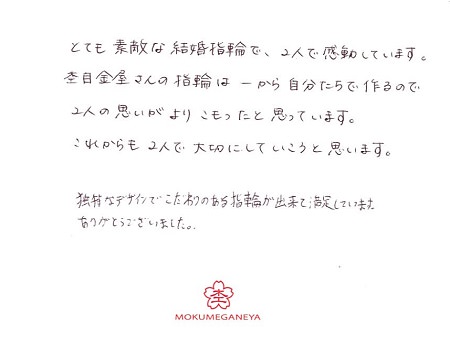 とても素敵な結婚指輪で、2人で感動しています。
杢目金屋さんの指輪は一から自分たちで作るので
2人の思いがよりこもったと思っています。
これからも2人で大切にしていこうと思います。
独特なデザインでこだわりのある指輪が出来て満足しています
ありがとうございました。
杢
MOKUMEGANEYA